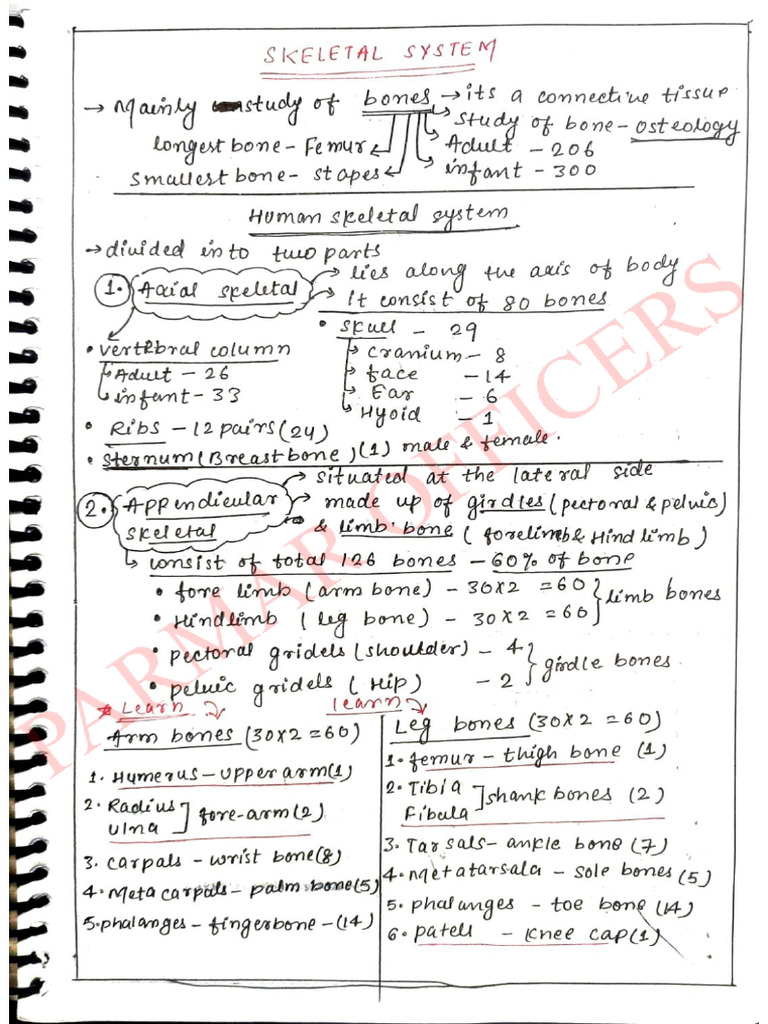 SKELETAL SYSTEM
→ Mainly study of bones → its a connective tissue
→ Study of bone - osteology
longest bone - Femur
Adult - 206
smallest bone - stapes
infant - 300
Human skeletal system
→ divided into two parts
1. Axial skeletal
→ lies along the axis of body
→ It consist of 80 bones
• vertebral column
Adult - 26
infant - 33
• Skull - 29
Cranium - 8
face - 14
Ear - 6
Hyoid - 1
• Ribs - 12 pairs (24)
• sternum (Breast bone) (1) male & female.
2. Appendicular skeletal
→ situated at the lateral side
→ made up of girdles (pectoral & pelvic)
& limb bone (forelimb & Hind limb)
→ consist of total 126 bones - 60% of bone
• fore limb (arm bone) - 30x2 = 60
• Hindlimb (leg bone) - 30x2 = 60
} limb bones
• pectoral gridels (shoulder) - 4
• pelvic gridels (Hip) - 2
} girdle bones
* Learn
learn
Arm bones (30x2 = 60)
1. Humerus - upper arm (1)
2. Radius
ulna ] fore-arm (2)
3. carpals - wrist bone (8)
4. Meta carpals - palm bone (5)
5. phalanges - fingerbone - (14)
Leg bones (30x2 = 60)
1. femur - thigh bone (1)
2. Tibia
Fibula ] shank bones (2)
3. Tarsals - ankle bone (7)
4. Metatarsala - sole bones (5)
5. phalanges - toe bone (14)
6. patell - knee cap (1)
PARMAR OFFICERS